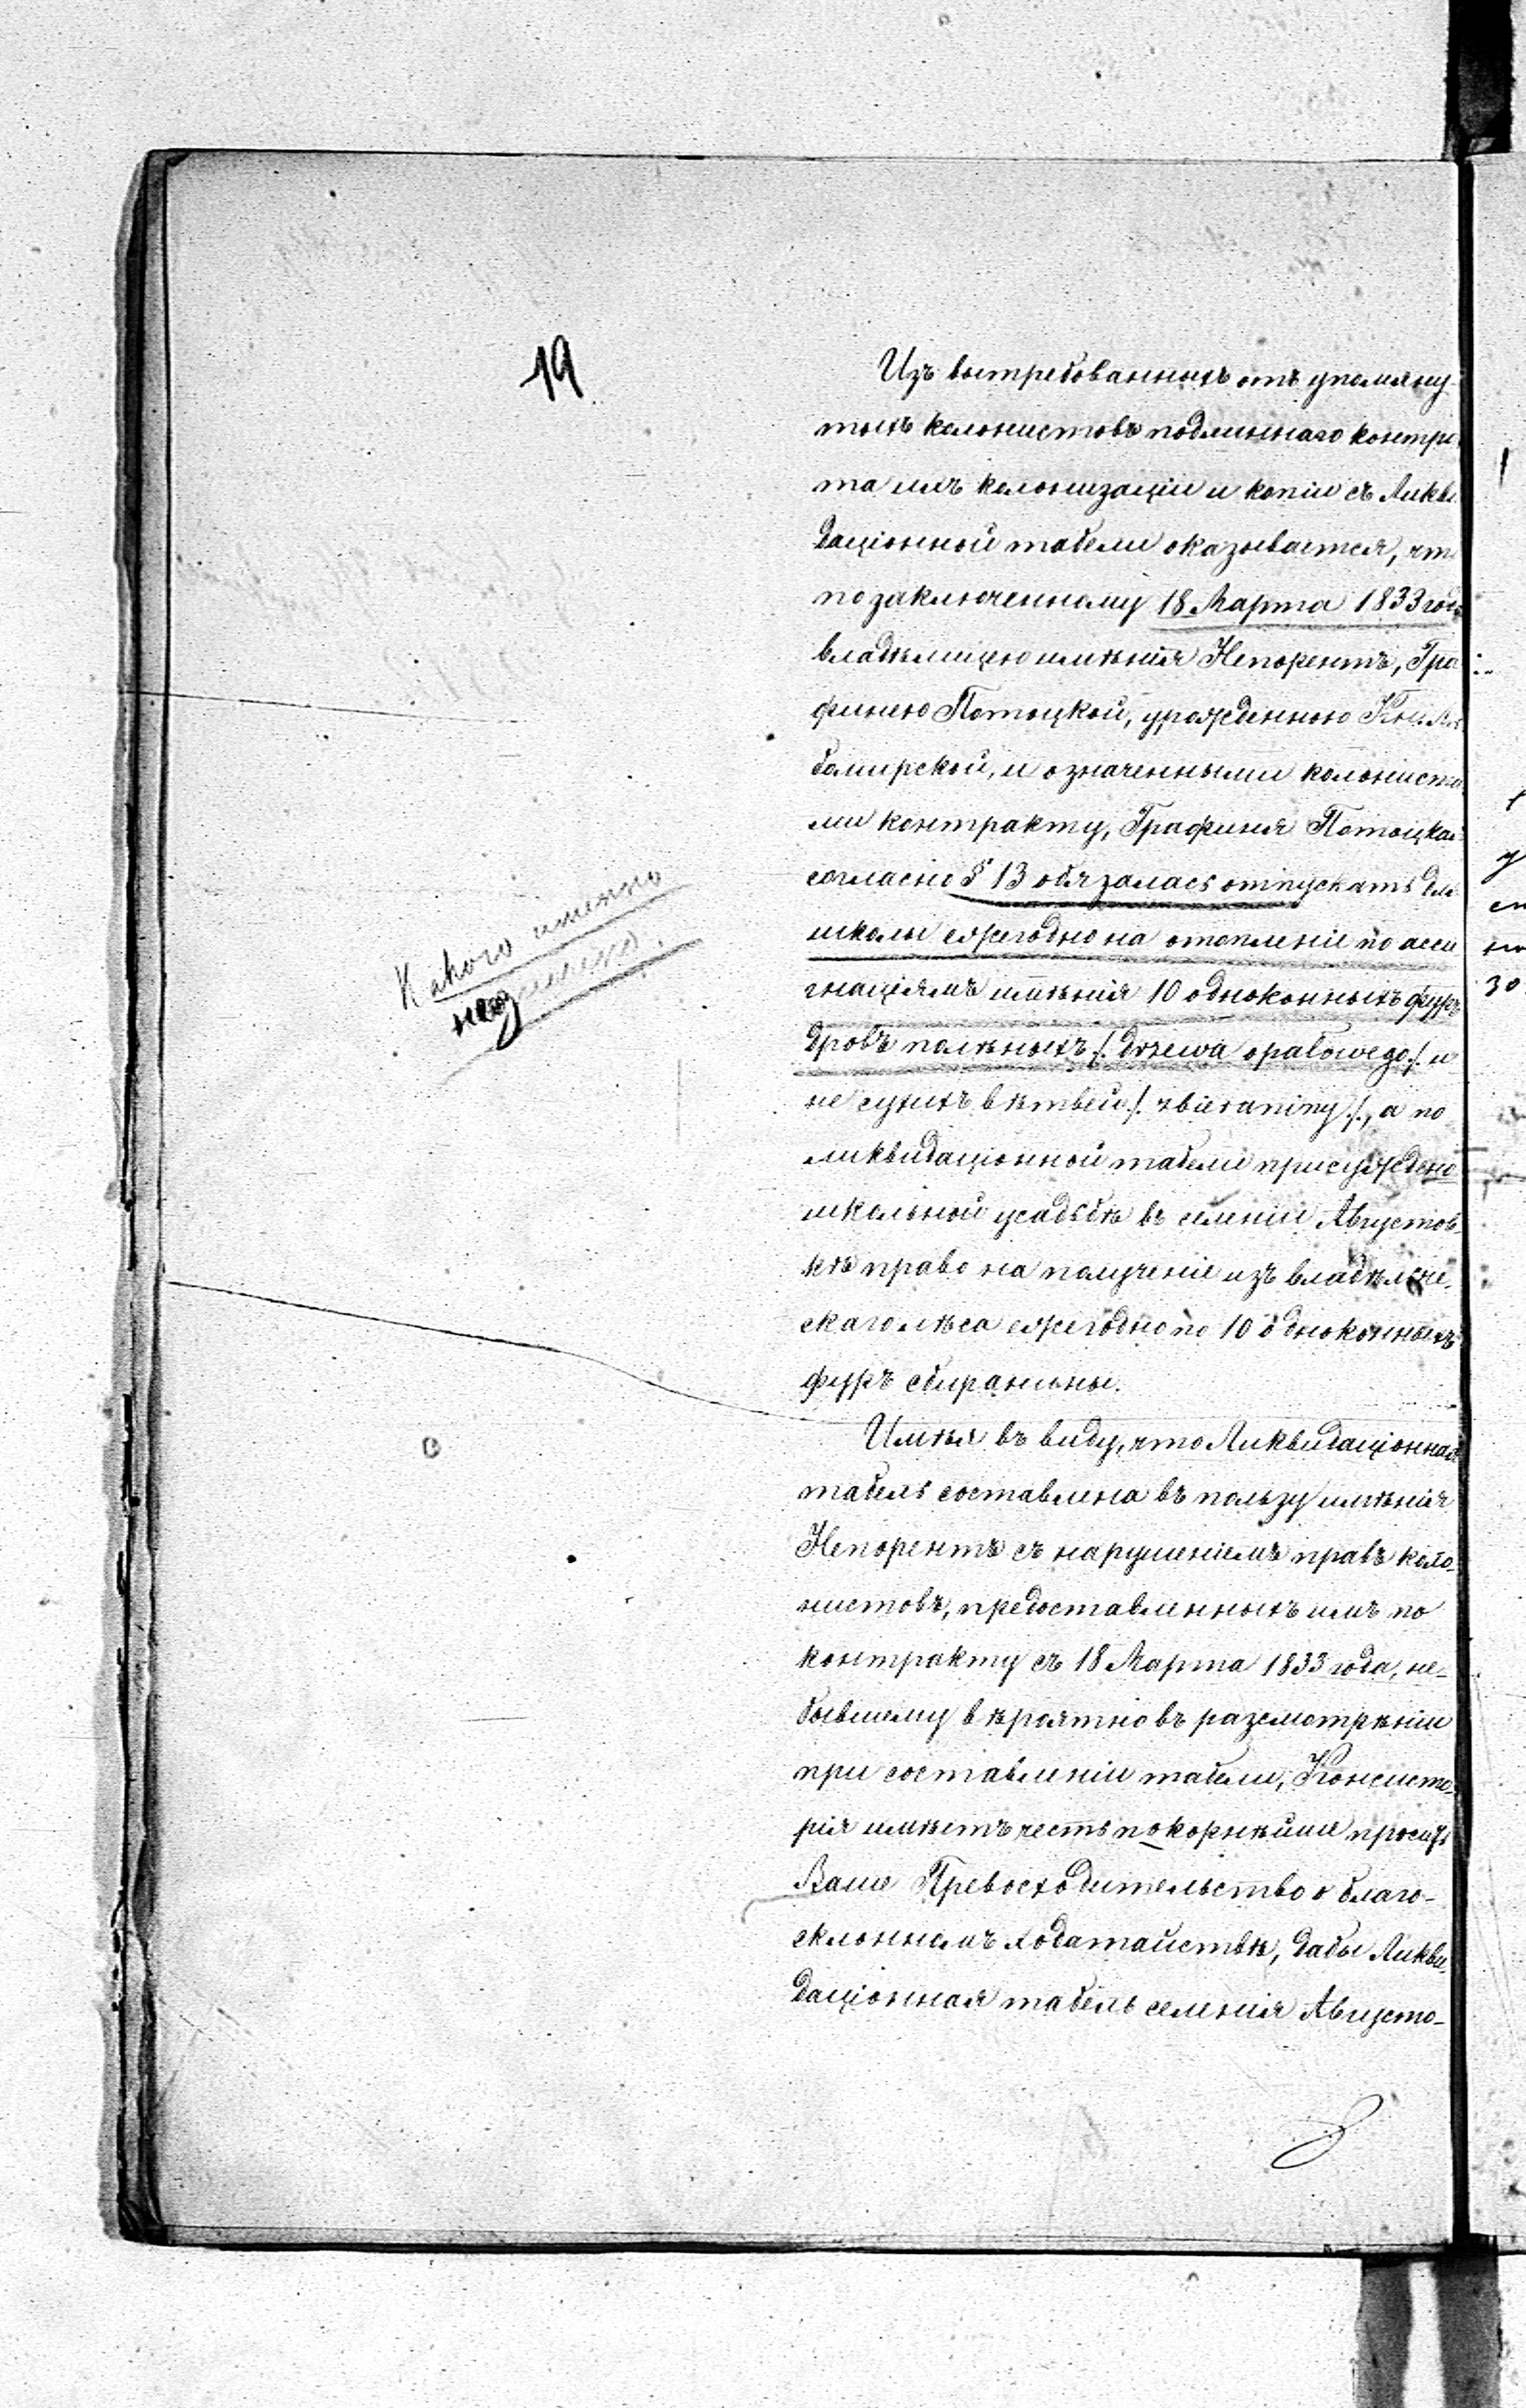 19
Изъ вытребованныхъ отъ упомяну-
тыхъ колонистовъ подлиннаго контра
та ихъ колонизаціи и копіи съ Ликви
даціонной табели оказывается, что
по заключенному 18 Марта 1833 года
владѣлицею имѣнія Непорентъ, Гра
финею Потоцкой, урожденною Кн. Лю
бомирской, и означенными колониста
ми контракту, Графиня Потоцкая
согласно § 13 обязалась отпускать для
школы ежегодно на отопленіе по асси
гнаціямъ имѣнія 10 одноконныхъ фуръ
дровъ полѣныхъ /. drzewa opałowego /. и
не сухихъ вѣтвей /. zbieraniny /., а по
ликвидаціонной табели присуждено
школьной усадьбѣ въ селеніи Августов-
кѣ право на полученіе изъ владѣльче-
скаго лѣса ежегодно по 10 одноконныхъ
фуръ сбиранины.
Какого именно
Имѣя въ виду, что Ликвидаціонная
табель составлена въ пользу имѣнія
Непорентъ съ нарушеніемъ правъ коло-
нистовъ, предоставленныхъ имъ по
контракту съ 18 Марта 1833 года, не-
бывшему вѣроятно въ разсмотрѣніи
при составленіи табели, Консисто-
рія имѣетъ честь покорнѣйше просить
Ваше Превосходительство о благо-
склонномъ ходатайствѣ, дабы Ликви-
даціонная табель селенія Августо-